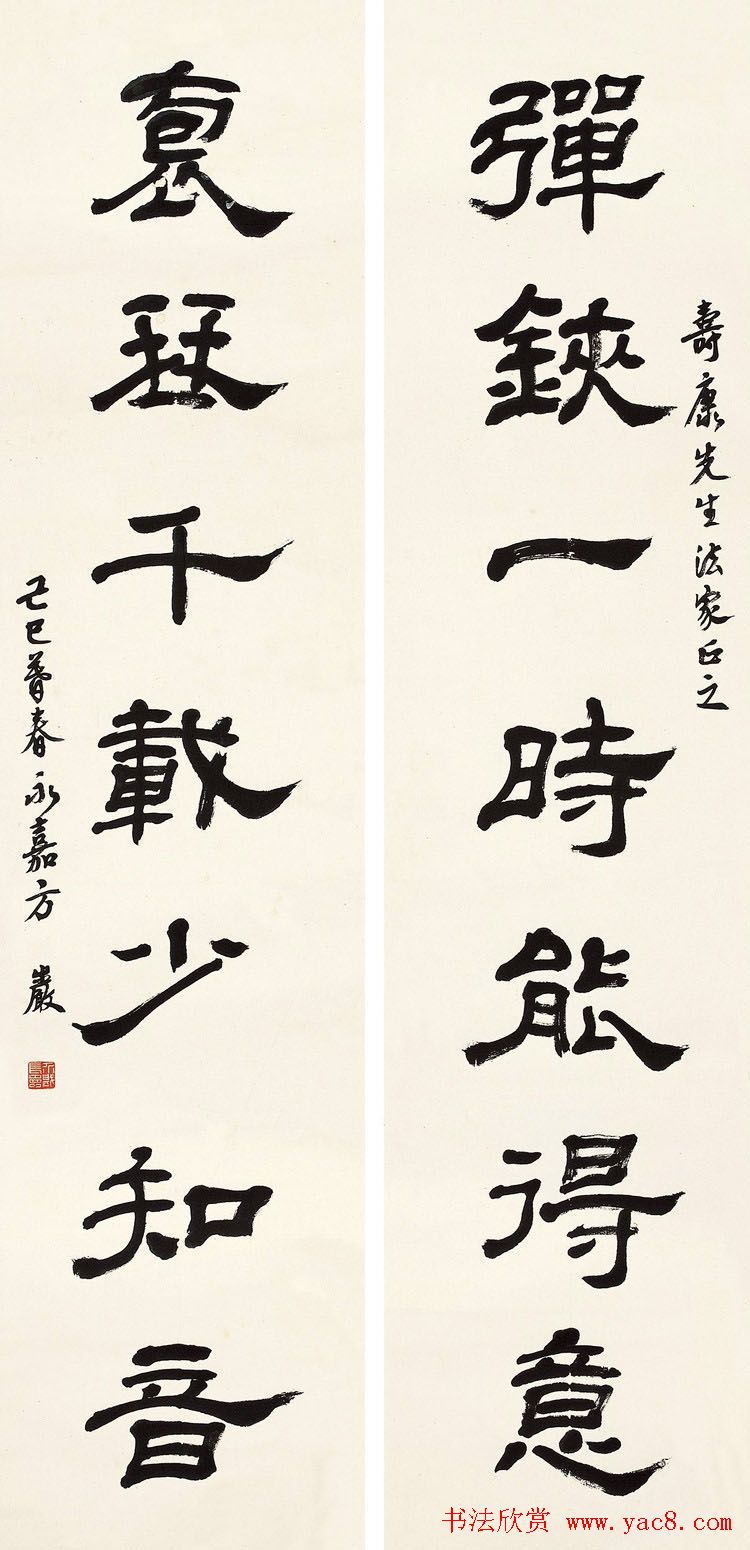 壽康先生法家正之
彈鋏一時能得意
琹千載少知音
己巳暮春永嘉方巖
书法欣赏 www.yac8.com